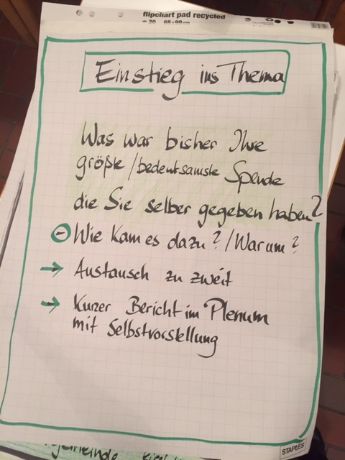 flipchart pad recycled
Einstieg ins Thema
Was war bisher Ihre
größte/bedeutsamste Spende
die Sie selber gegeben haben?
Wie kam es dazu?/Warum?
→ Austausch zu zweit
→ Kurzer Bericht im Plenum
mit Selbstvorstellung
STAPLES